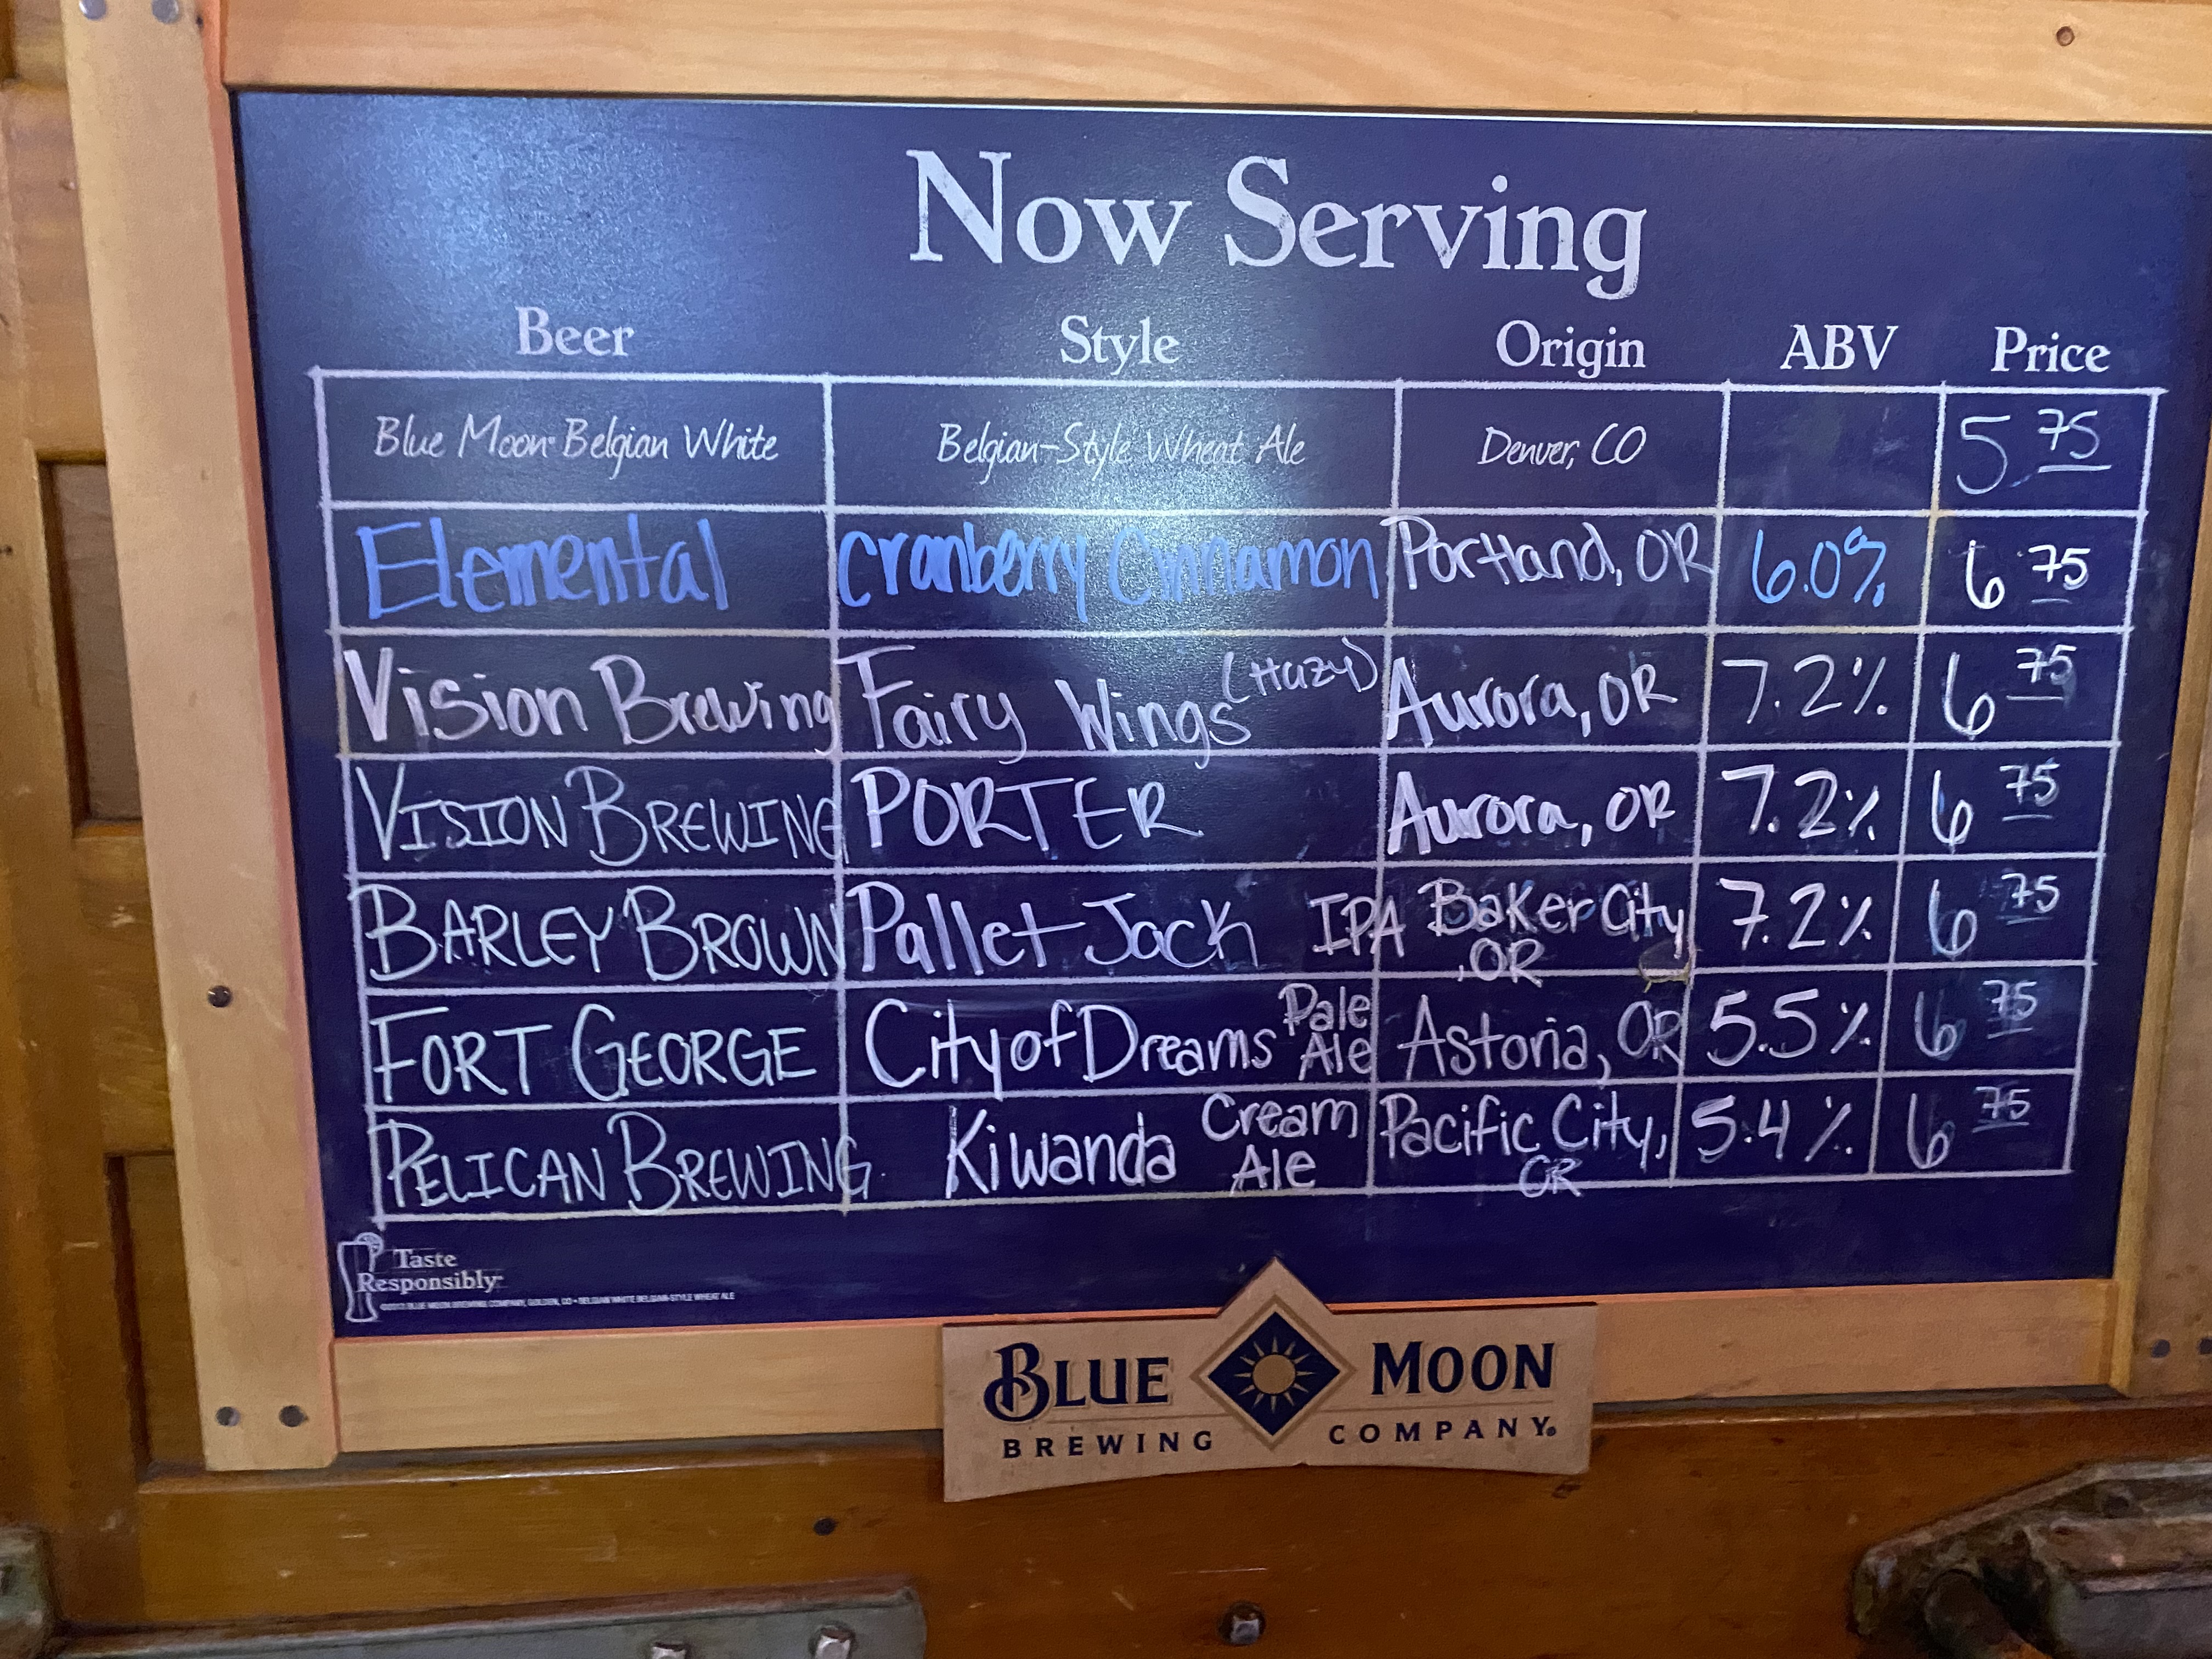 Now Serving
Beer Style Origin ABV Price
Blue Moon Belgian White Belgian-Style Wheat Ale Denver, CO 5 75
Elemental cranberry Cinnamon Portland, OR 6.0% 6 75
Vision Brewing Fairy Wings (Hazy) Aurora, OR 7.2% 6 75
VISION BREWING PORTER Aurora, OR 7.2% 6 75
BARLEY BROWN Pallet Jack IPA Baker City 7.2% 6 75
,OR
FORT GEORGE City of Dreams Pale Ale Astoria, OR 5.5% 6 75
PELICAN BREWING Kiwanda Cream Ale Pacific City, 5.4% 6 75
OR
Taste
Responsibly
©2013 BLUE MOON BREWING COMPANY, GOLDEN, CO • BELGIAN WHITE BELGIAN-STYLE WHEAT ALE
BLUE MOON
BREWING COMPANY®